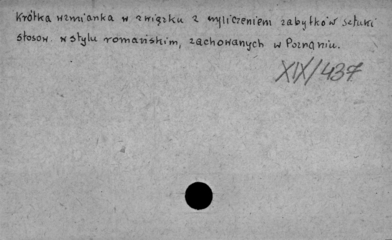 Krótka wzmianka w związku z wyliczeniem zabytków sztuki
stosow. w stylu romańskim, zachowanych w Poznaniu.
XIX/437